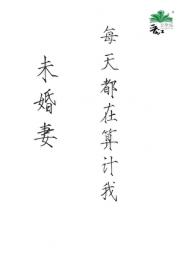 未婚妻
每天都在算计我